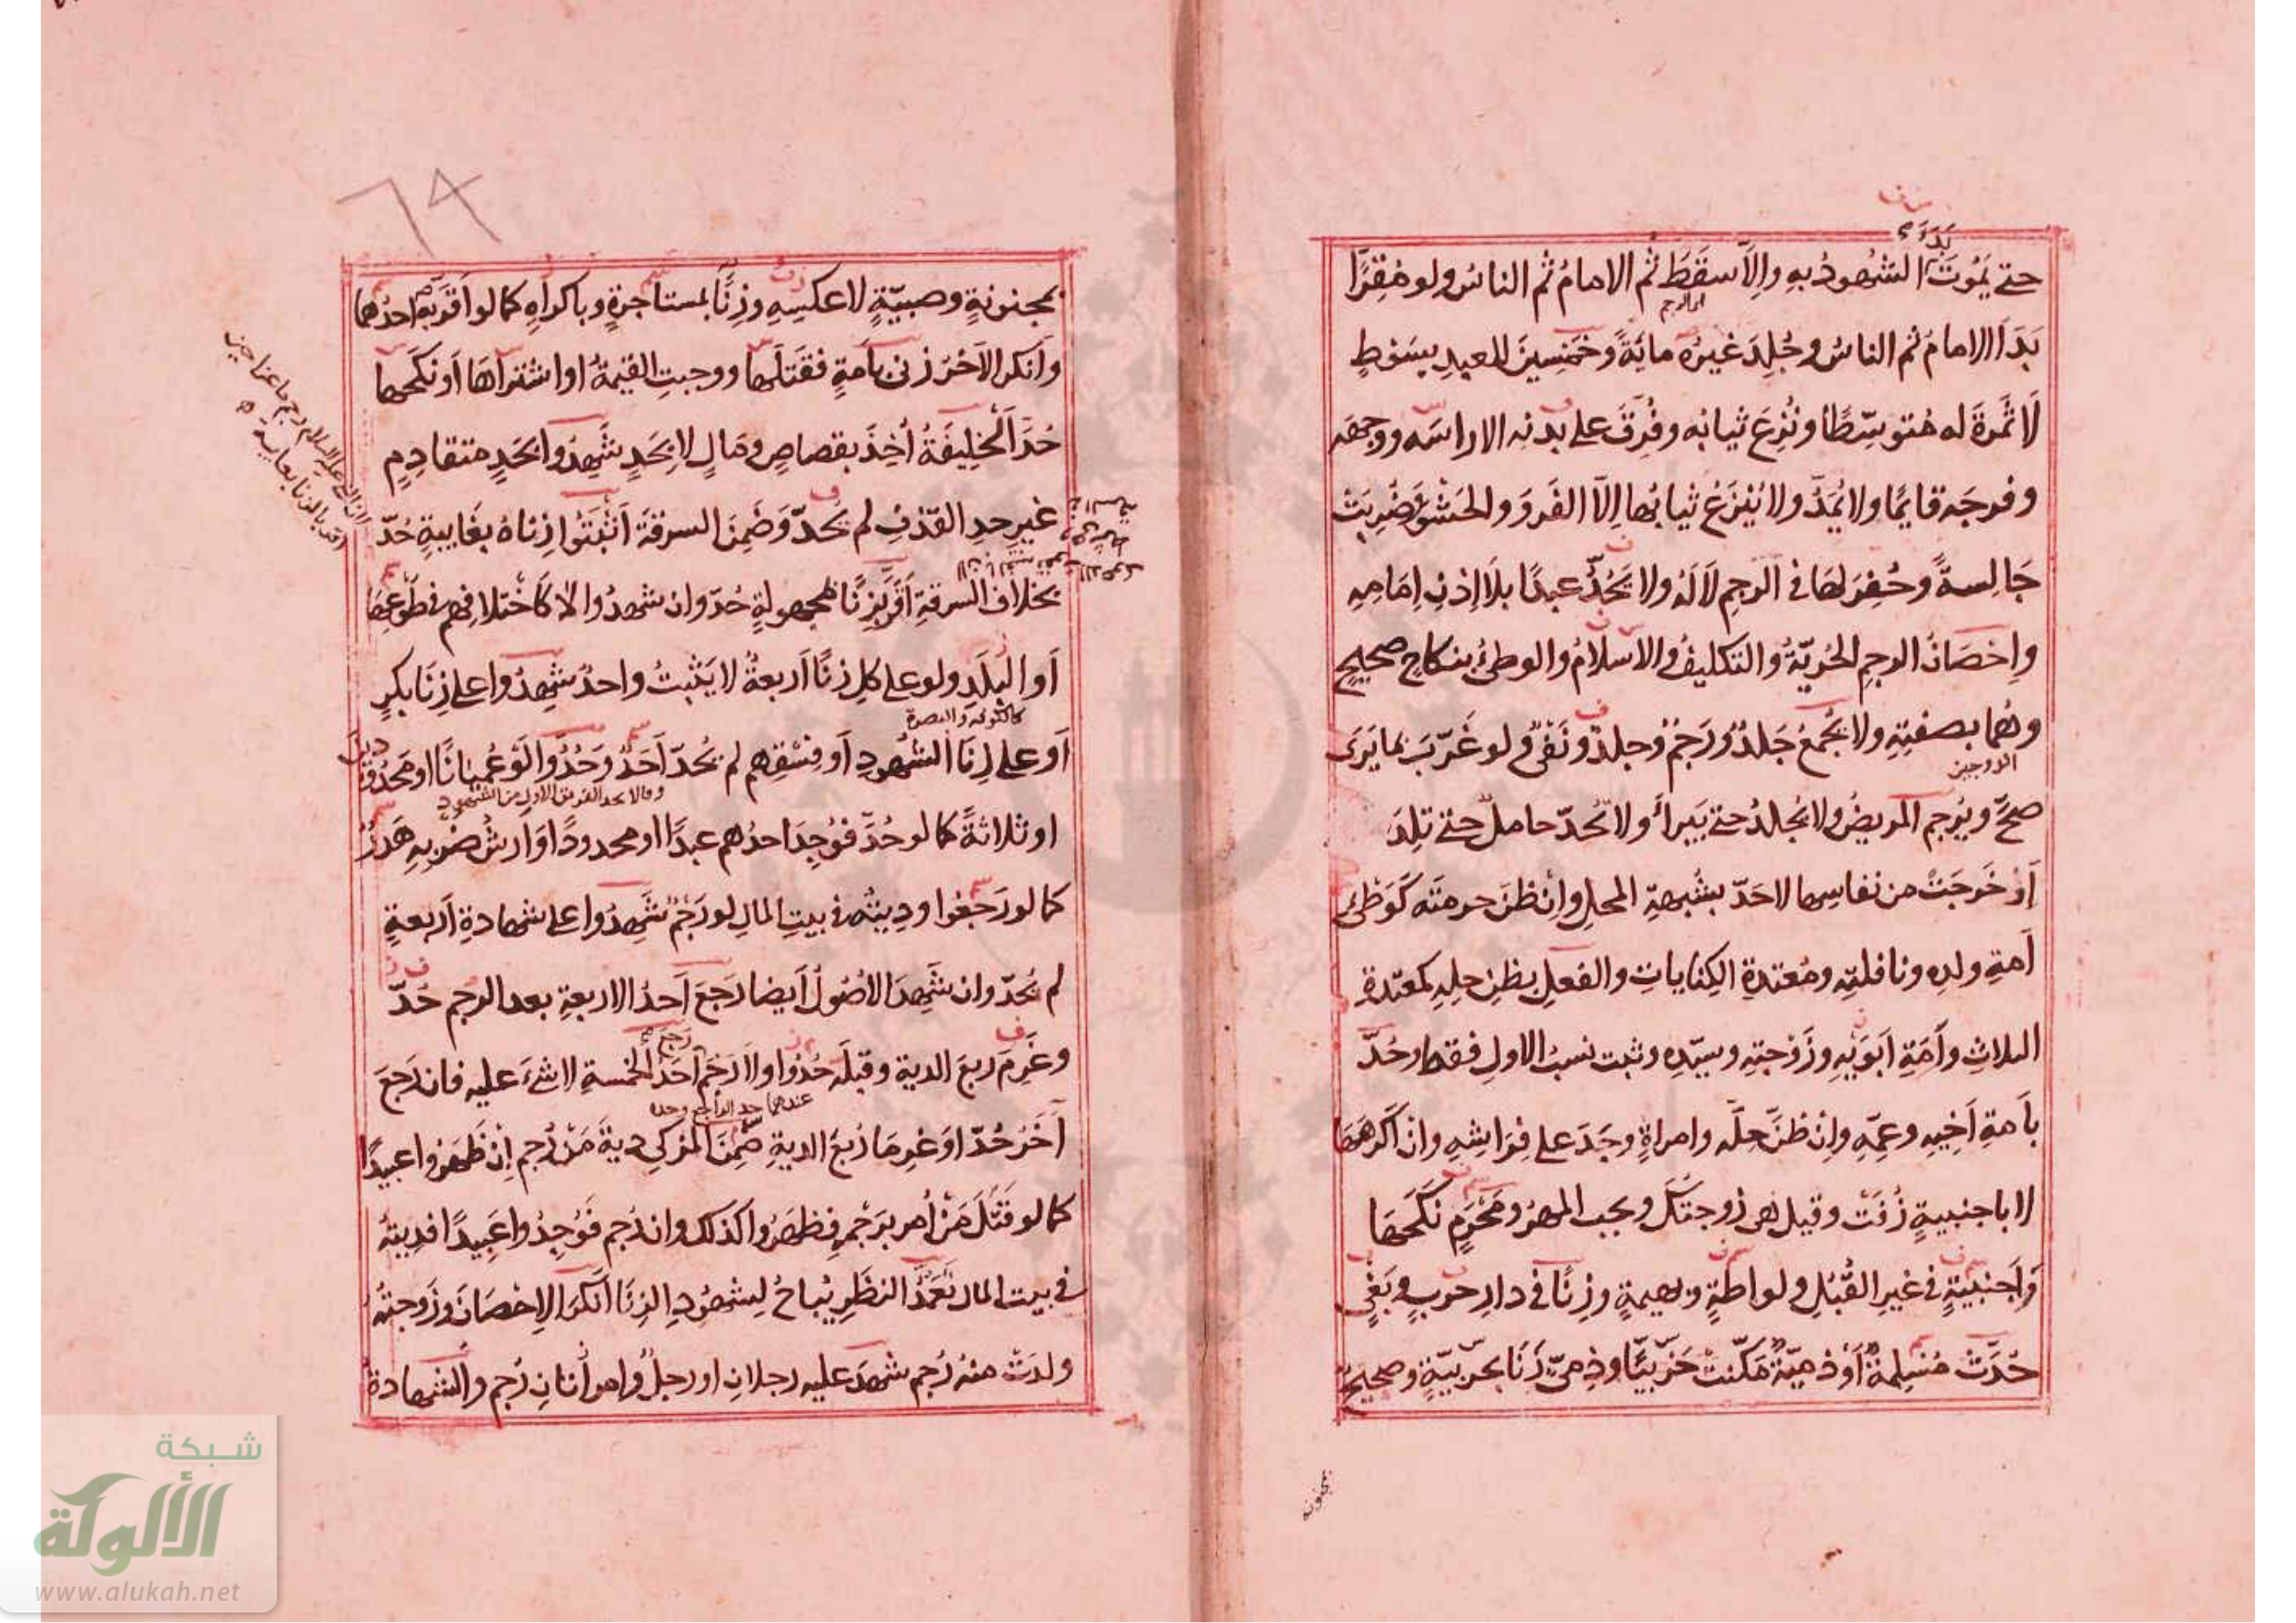 بَدَأَ
حتى يَمُوتَ الشهودُ به وإلّا سقَطَ ثم الامامُ ثم الناسُ ولو مُقِرًّا
اى الرجم
بَدَأ الامامُ ثم الناسُ وجُلِدَ غيرُه مايَةً وخَمسِينَ للعبدِ بِسَوْطٍ
لَا ثَمَرَةَ له مُتوسِّطًا ونُزِعَ ثيابُه وفُرِّقَ على بدنه الا راسَه ووجهَه
وفرجَه قايمًا ولا يُمَدُّ ولا يُنْزَعُ ثيابُها إلّا الفَرْوَ والحَشْوَ وضُرِبَتْ
جَالِسةً وحُفِرَ لها في الرجمِ لا لَهُ ولا يَحُدُّ عبدًا بلا إذنِ إمَامِهِ
وإحْصَانُ الرجمِ الحُرِيّةُ والتكليفُ والاسلامُ والوطئُ بنكاحٍ صحيحٍ
وهُما بصفتِهِ ولا يُجْمَعُ جَلدٌ ورَجْمٌ وجلدٌ ونَفْىٌ ولو غَرَّبَ بما يَرَى
الزوجين
صَحَّ ويُرْجم المريضُ ولا يُجلدُ حتى يَبرأَ ولا تُحدّ حامل حتى تلِدَ
أو خَرجَتْ من نفاسِها لا حَدّ بشُبهةِ المحلِ وإنْ ظنَ حرمتَه كَوَطْئِ
أمةِ ولدِه ونافلتِه ومُعتدةِ الكنايات والفعلِ بظنِ حلِهِ كمعتدةِ
الثلاثِ وأَمَةِ ابوَيْهِ وزَوْجتِهِ وسيّدِه وثبت نسبُ الاولِ فقط وحُدَّ
بأمةِ أخِيهِ وعمِّهِ وإنْ ظَنَّ حِلَّه وامراةٍ وجَدَ على فِراشِهِ وان أكرهَهَا
لا باجنبيةٍ زُفَتْ وقيل هى زوجتُكَ ويجب المهرُ ومَحْرَمٍ نكَحَهَا
وَأجنبيةٍ في غيرِ القُبُلِ ولواطةٍ وبهيمةٍ وزنًا في دارِ حربٍ وبَغْىٍ
حُدَّتْ مُسلِمةٌ أوْ ذميّةٌ مَكّنتْ حَرْبيًّا وذِمىّ زَنَا بحربيّةٍ وصحيحٌ
بمجنونة
٦٩
بمجنونةٍ وصبيّةٍ لا عكسِهِ وزِنًا بمستأجرةٍ وباكراهٍ كما لو أقرَّ به احدُهما
وأنكر الآخرُ زنى بأمةٍ فقتلَها ووجبتِ القيمةُ او اشتراهَا أو نكحها
حُدَ الخليفةُ أُخِذَ بقصاصٍ ومَالٍ لا بِحَدٍ شَهِدُوا بحَدٍ متقادِمٍ
غيرِ حدِ القَذفِ لم يُحَدّ وَضَمِنَ السرقةَ أثْبَتُوا زناهُ بغَايبةٍ حُدّ
بخلاف السرقةِ أقرَّ بِزِنًا بمجهولةٍ حُدّ وان شهدُوا لا كاختلافهم في طَوْعِهَا
أو البلَدِ ولو على كل زنًا أربعةٌ لا يَثبتُ واحدٌ شَهِدُوا على زِنَا بكرٍ
كالكوفه والبصرة
أو على زِنَا الشهُودِ أو فِسْقِهم لم يُحدّ أحَدٌ وَحُدُّوا لَوْ عُميانًا او مَحدُودِينَ
وقالا يحد الفريق الاول من الشهود
او ثلاثةً كما لو حُدَّ فوُجِدَ احدُهم عبدًا او محدودًا وارشُ ضربِه هَدَرٌ
كما لو رَجَعُوا وديتُه في بيتِ المالِ لو رَجمْ شَهِدُوا على شهادةِ أربعةٍ
لم يُحدّ وان شَهِدَ الأُصُولُ أيضا رَجعَ أحدُ الاربعةِ بعد الرجم حُدّ
وغَرِمَ ربعَ الديةِ وقبلَه حُدُوا ولا رَجْم رجع أحَدُ الخمسةِ لا شئَ عليه فان رَجعَ
عندهما حد الراجع وحده
آخَرُ حُدّا وَغرِمَا رُبعَ الديةِ ضَمِنَ المزكى ديةَ مَنْ رُجم إنْ ظهرُوا عبيدًا
كما لو قتَلَ مَنْ أمر برَجْمِه فظهرُوا كذلك وان رُجم فوُجِدُوا عَبِيدًا فديتُه
في بيت المال تعَمّدُ النظَرِ يُباحُ لِشهُودِ الزِنَا أنْكرَ الإحْصَانَ وزَوجتُه
ولدَتْ منه رُجم شَهدَ عليه رجلانِ او رجلٌ وامرأتانِ رُجم والشهادة
شبكة
الألوكة
www.alukah.net